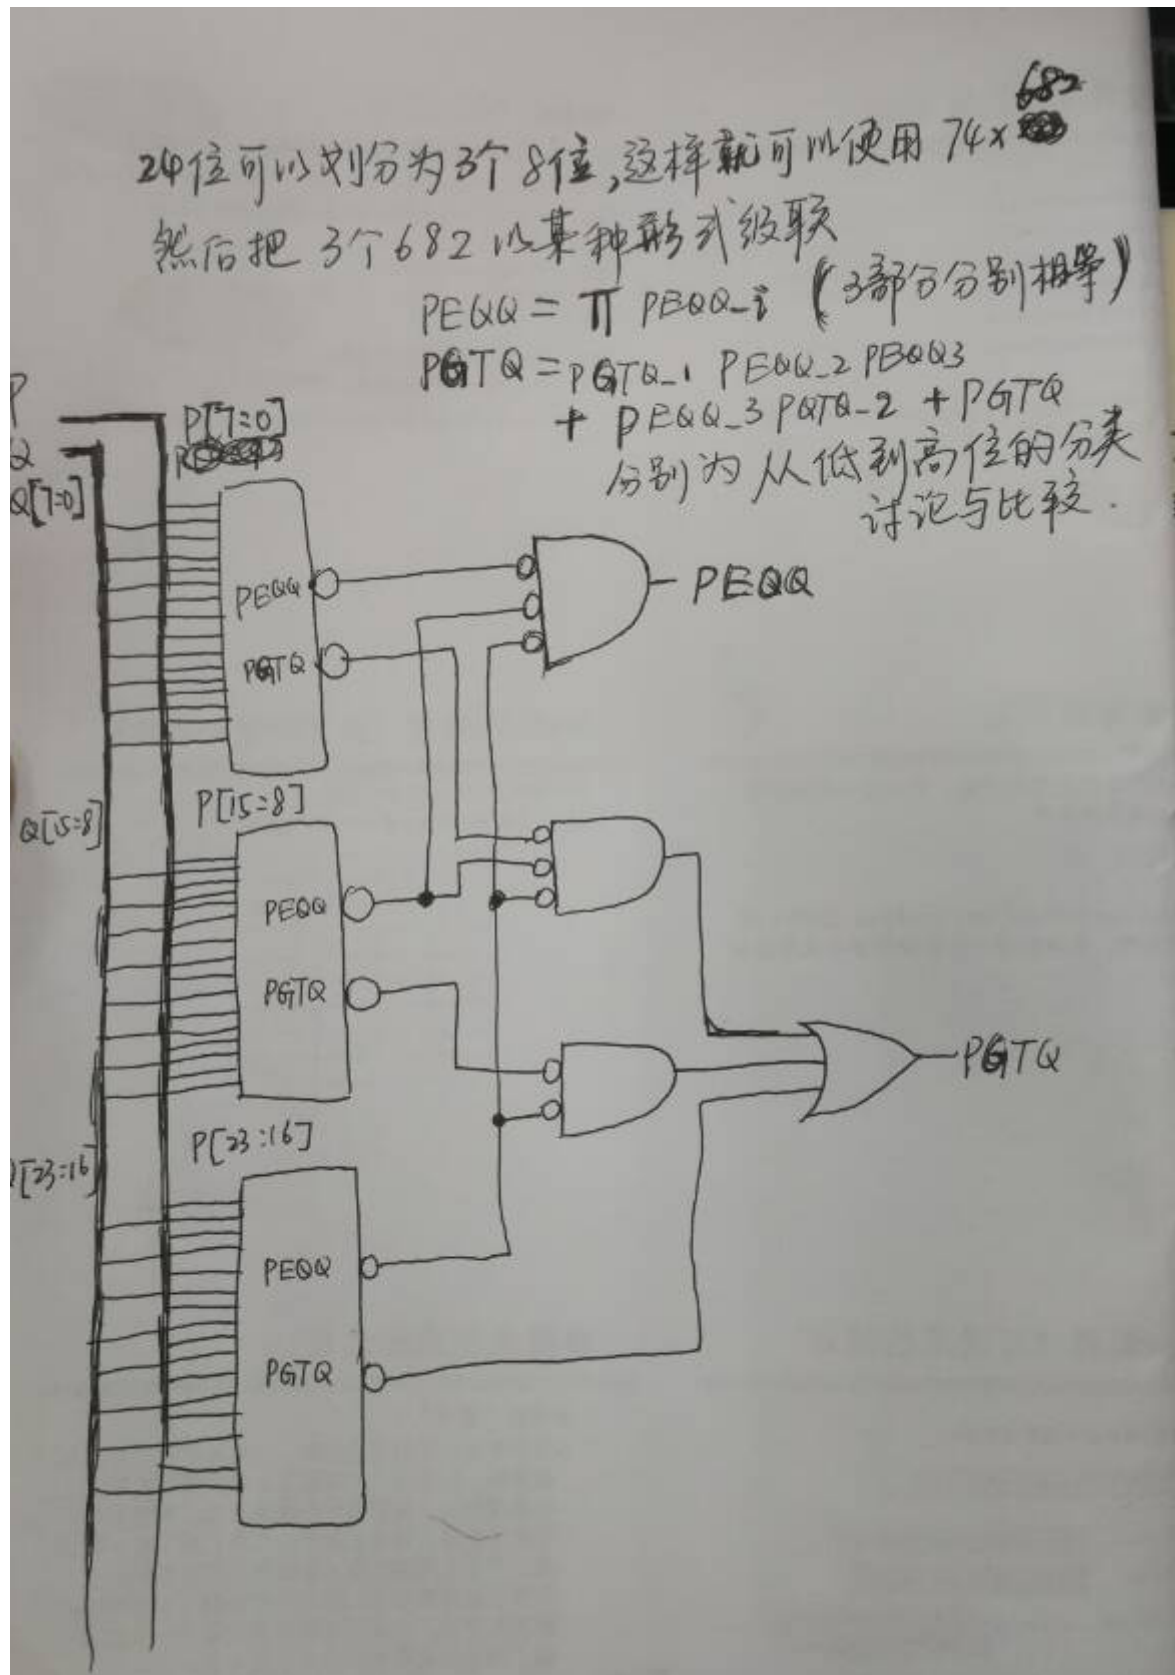 682
24位可以划分为3个8位,这样就可以使用 74x
然后把 3个682 以某种形式级联
PEQQ = π PEQQ_i (3部分分别相等)
PGTQ = PGTQ_1 PEQQ_2 PEQQ3
+ PEQQ_3 PGTQ_2 + PGTQ
分别为 从低到高位的分类
讨论与比较.
P
P[7=0]
Q
Q[7=0]
PEQQ
PEQQ
PGTQ
P[15=8]
Q[15=8]
PEQQ
PGTQ
PGTQ
P[23:16]
[23=16]
PEQQ
PGTQ